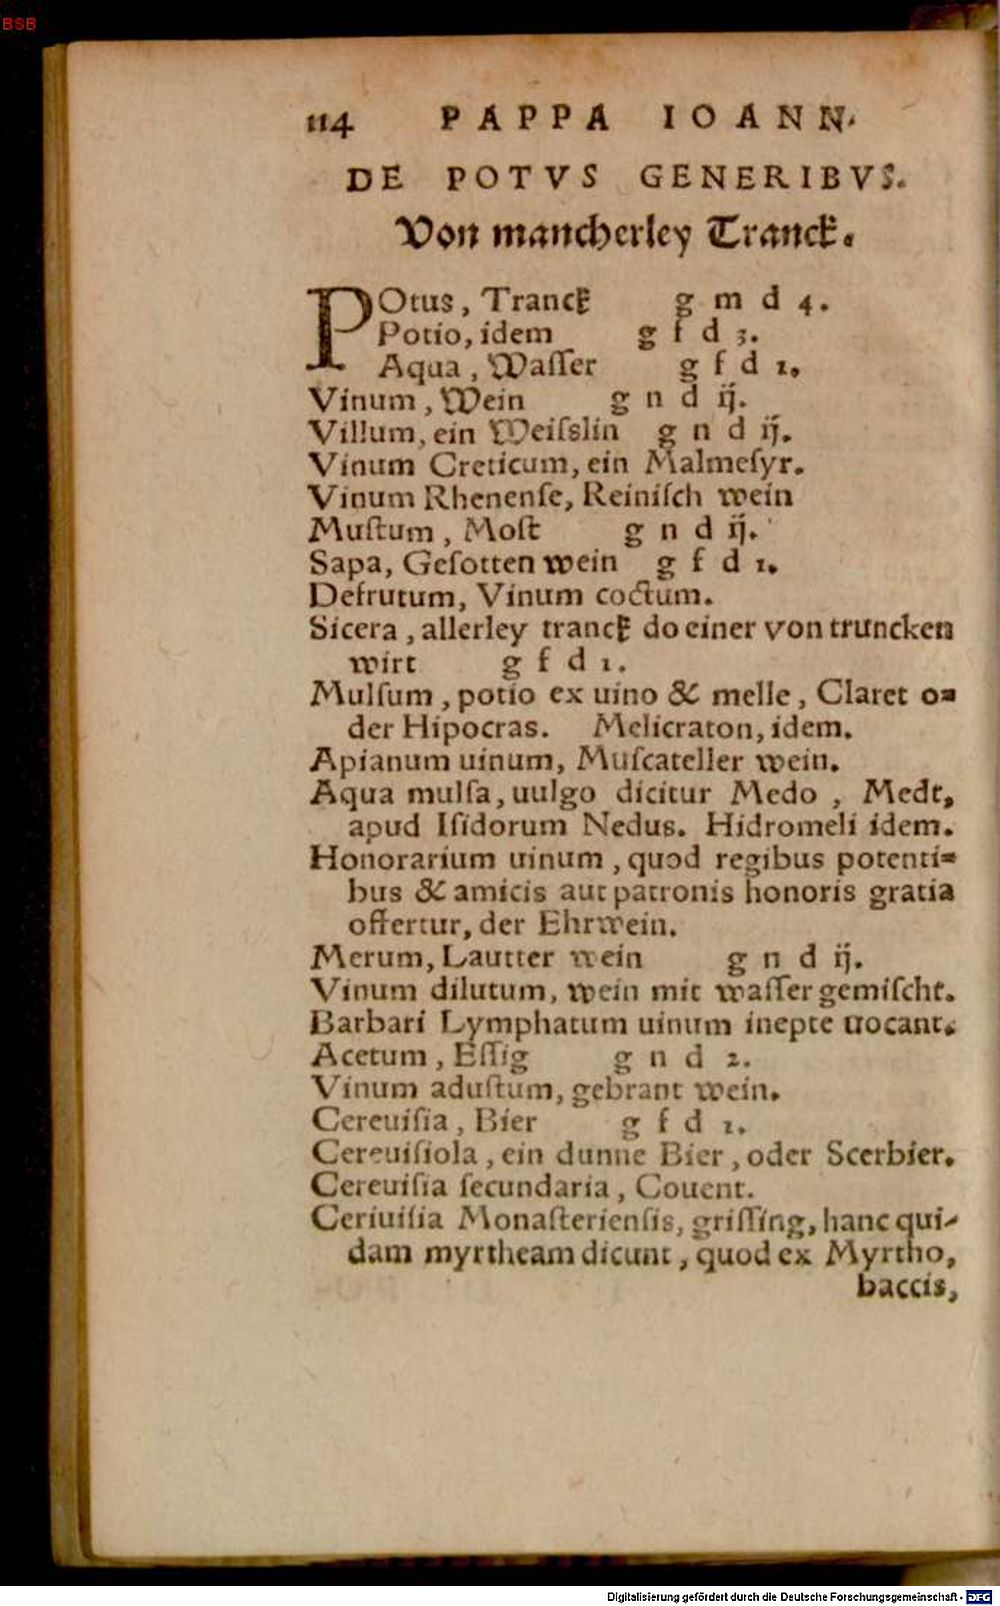 BSB
114 PAPPA IOANN.
DE POTVS GENERIBVS.
Von mancherley Tranck.
POtus, Tranck g m d 4.
Potio, idem g f d 3.
Aqua, Waſſer g f d 1.
Vinum, Wein g n d ij.
Villum, ein Weiſslin g n d ij.
Vinum Creticum, ein Malmeſyr.
Vinum Rhenenſe, Reiniſch wein
Muſtum, Moſt g n d ij.
Sapa, Geſotten wein g f d 1.
Defrutum, Vinum coctum.
Sicera, allerley tranck do einer von truncken
wirt g f d 1.
Mulſum, potio ex uino & melle, Claret o=
der Hipocras. Melicraton, idem.
Apianum uinum, Muſcateller wein.
Aqua mulſa, uulgo dicitur Medo, Medt,
apud Iſidorum Nedus. Hidromeli idem.
Honorarium uinum, quod regibus potenti=
bus & amicis aut patronis honoris gratia
offertur, der Ehrwein.
Merum, Lautter wein g n d ij.
Vinum dilutum, wein mit waſſer gemiſcht.
Barbari Lymphatum uinum inepte uocant.
Acetum, Eſſig g n d 2.
Vinum aduſtum, gebrant wein.
Cereuiſia, Bier g f d 1.
Cereuiſiola, ein dunne Bier, oder Scerbier.
Cereuiſia ſecundaria, Couent.
Ceriuiſia Monaſterienſis, griſſing, hanc qui-
dam myrtheam dicunt, quod ex Myrtho,
baccis,
Digitalisierung gefördert durch die Deutsche Forschungsgemeinschaft - DFG